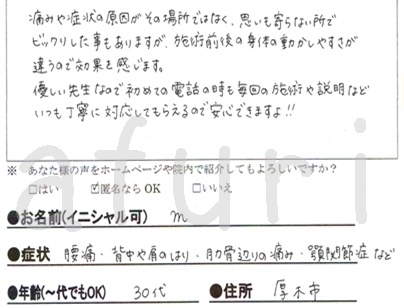 痛みや症状の原因がその場所ではなく、思いも寄らない所で
ビックリした事もありますが、施術前後の身体の動かしやすさが
違うので効果を感じます。
優しい先生なので初めての電話の時も毎回の施術や説明など
いつも丁寧に対応してもらえるので安心できますよ!!
※ あなた様の声をホームページや院内で紹介してもよろしいですか?
□はい ☑匿名なら OK □いいえ
●お名前(イニシャル可) m
●症状 腰痛・背中や肩のはり・肋骨辺りの痛み・顎関節症など
●年齢(~代でもOK) 30代 ●住所 厚木市
afuri